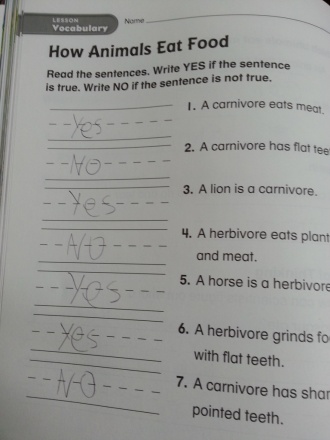 LESSON
Vocabulary
Name
How Animals Eat Food
Read the sentences. Write YES if the sentence
is true. Write NO if the sentence is not true.
Yes
1. A carnivore eats meat.
No
2. A carnivore has flat tee
Yes
3. A lion is a carnivore.
NO
4. A herbivore eats plant
and meat.
Yes
5. A horse is a herbivore
Yes
6. A herbivore grinds fo
with flat teeth.
NO
7. A carnivore has shar
pointed teeth.